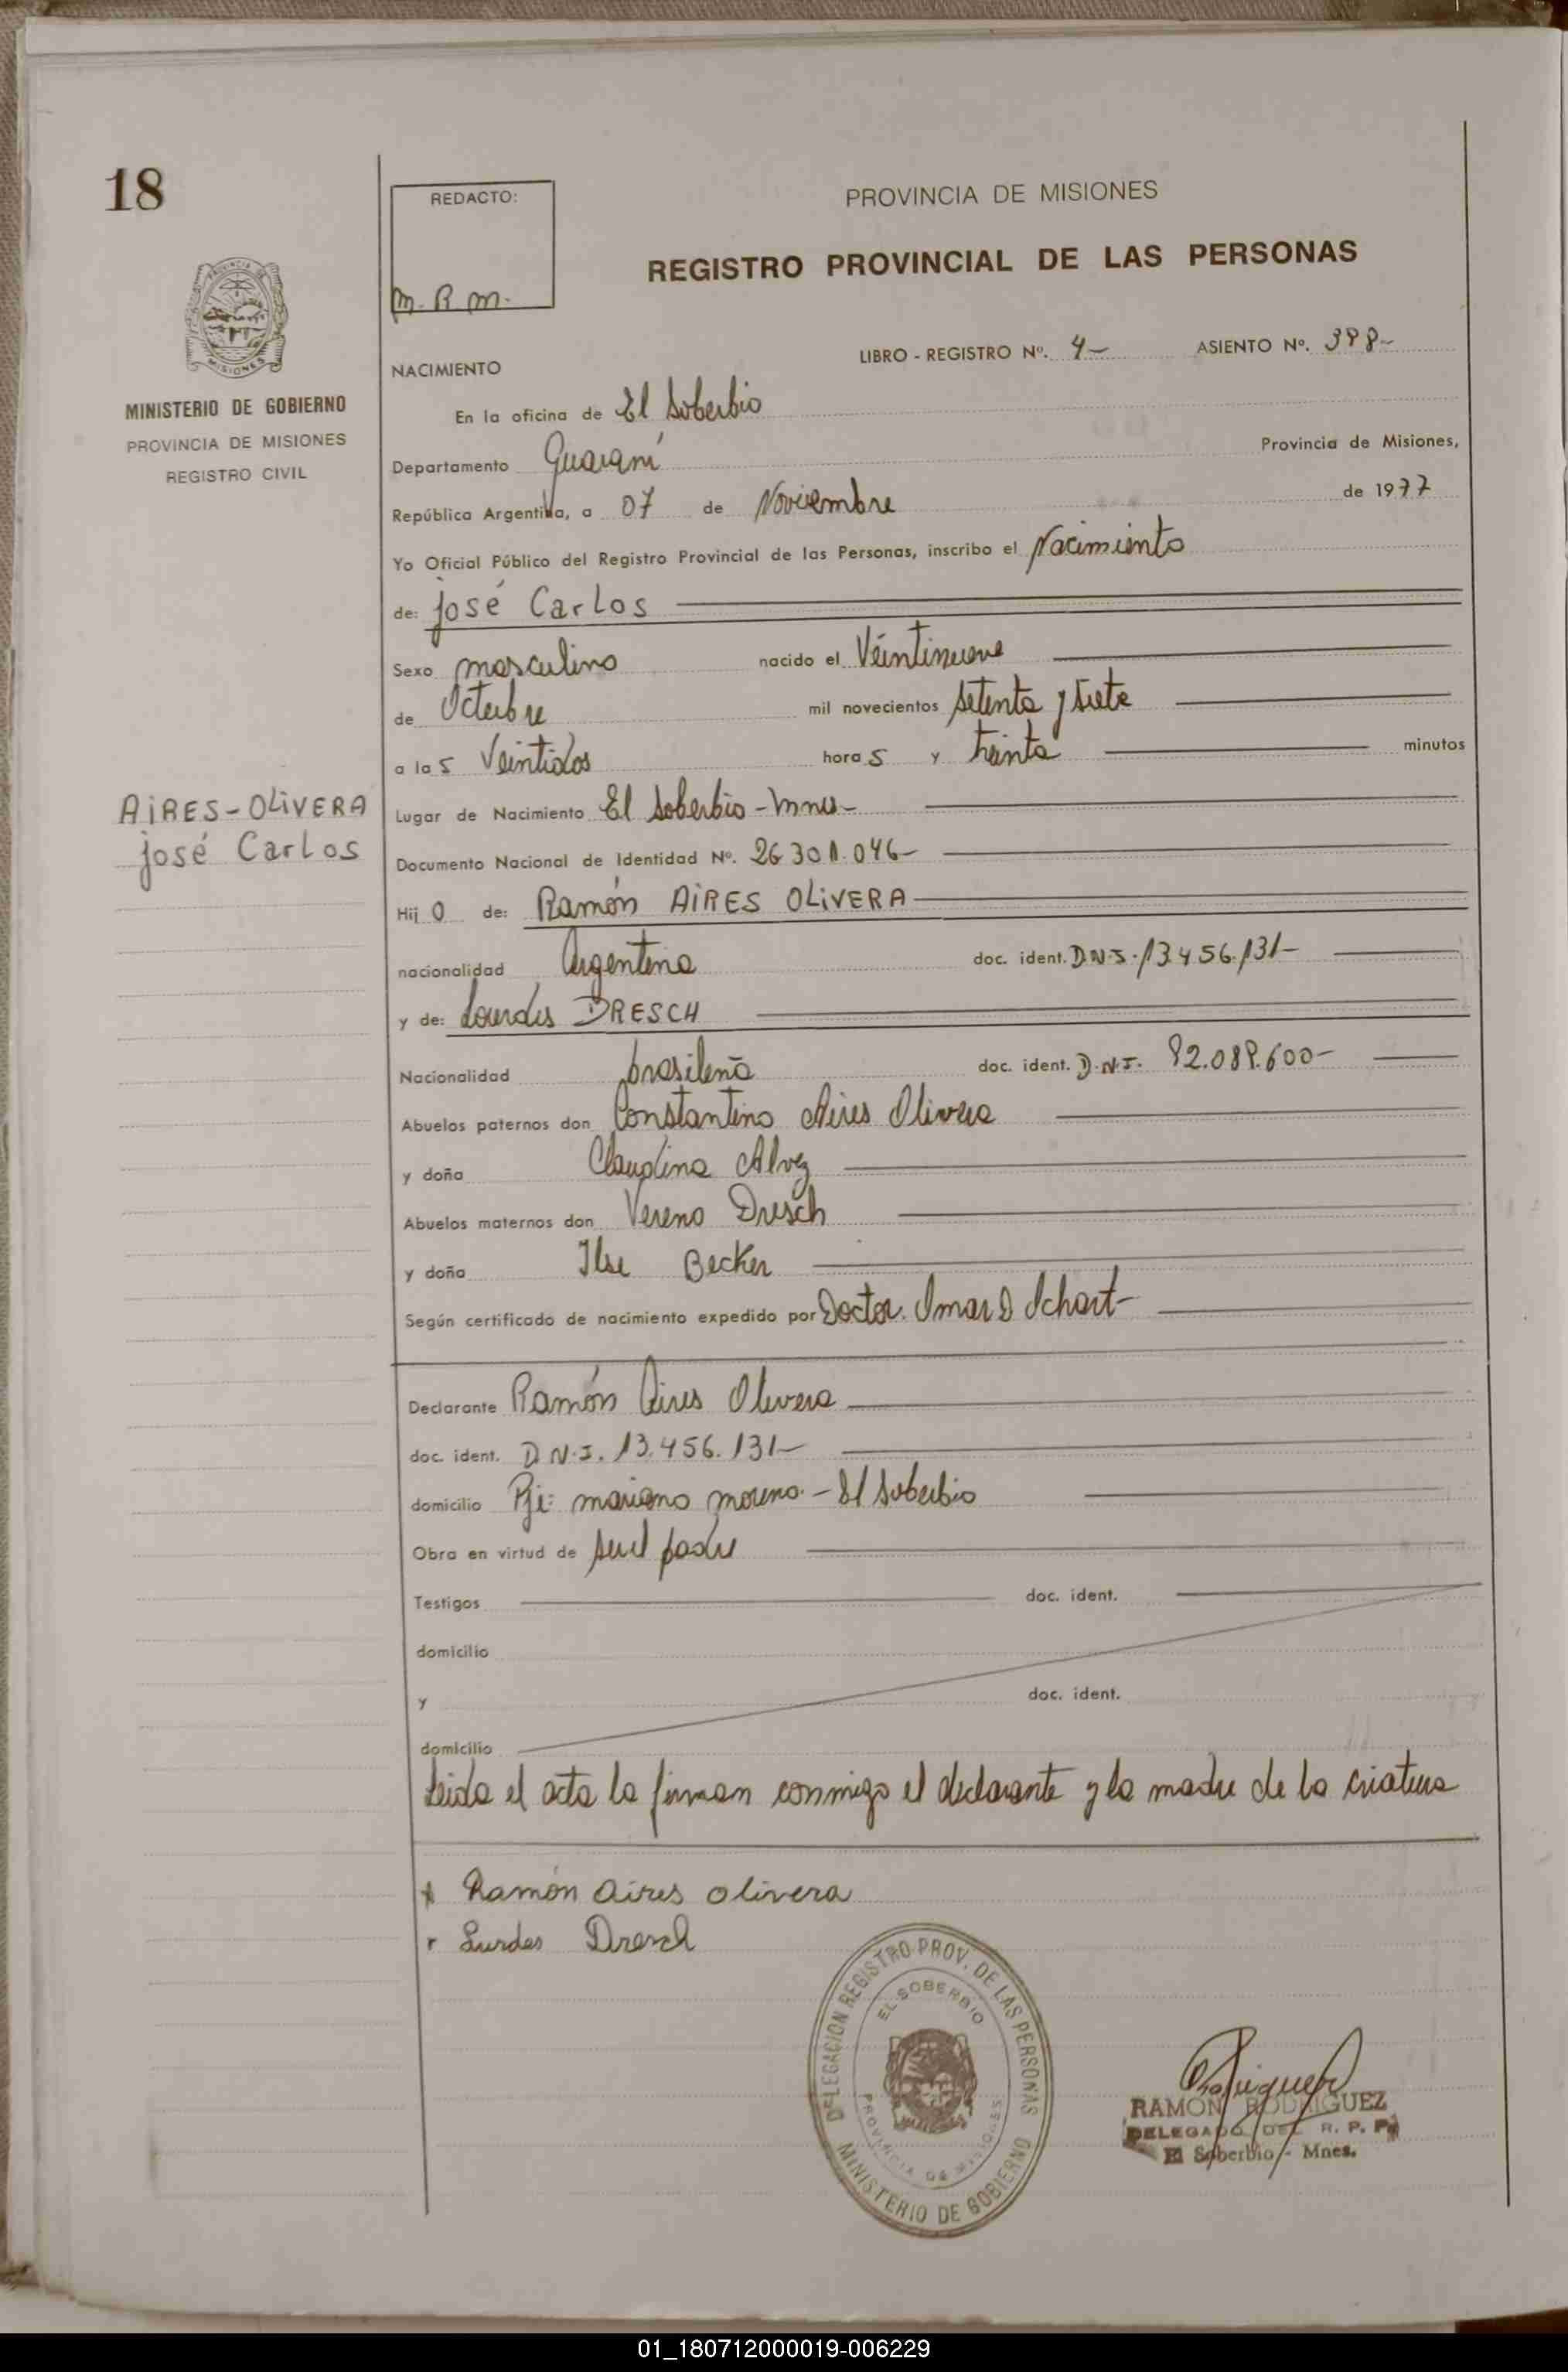 18
REDACTO:
M. R. M.
PROVINCIA DE MISIONES
REGISTRO PROVINCIAL DE LAS PERSONAS
LIBRO - REGISTRO Nº. 4- ASIENTO Nº. 398-
NACIMIENTO
MINISTERIO DE GOBIERNO
PROVINCIA DE MISIONES
REGISTRO CIVIL
En la oficina de El Soberbio
Departamento Guaraní Provincia de Misiones,
República Argentina, a 07 de Noviembre de 1977
Yo Oficial Público del Registro Provincial de las Personas, inscribo el Nacimiento
de: José Carlos
Sexo masculino nacido el Veintinueve
de Octubre mil novecientos setenta y siete
a las Veintidos horas y treinta minutos
AIRES-OLIVERA
José Carlos
Lugar de Nacimiento El Soberbio - Mnes-
Documento Nacional de Identidad Nº. 26.301.046-
Hijo de: Ramón AIRES OLIVERA
nacionalidad Argentina doc. ident. D.N.I. 13.456.131-
y de: Lourdes DRESCH
Nacionalidad brasileña doc. ident. D.N.I. 92.089.600-
Abuelos paternos don Constantino Aires Olivera
y doña Claudina Alvez
Abuelos maternos don Vereno Dresch
y doña Ilse Becker
Según certificado de nacimiento expedido por Doctor. Omar D Ichart-
Declarante Ramón Aires Olivera
doc. ident. D.N.I. 13.456.131-
domicilio Pje: mariano moreno - El Soberbio
Obra en virtud de ser el padre
Testigos doc. ident.
domicilio
y doc. ident.
domicilio
Leida el acta la firman conmigo el declarante y la madre de la criatura
Ramón Aires Olivera
Lurdes Dresch
DELEGACION REGISTRO PROV. DE LAS PERSONAS
EL SOBERBIO
PROVINCIA DE MISIONES
MINISTERIO DE GOBIERNO
RAMON RODRIGUEZ
DELEGADO DEL R. P. P.
El Soberbio - Mnes.
01_180712000019-006229